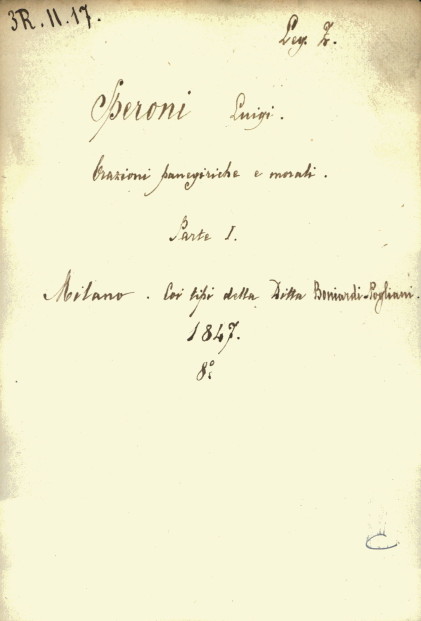 3R. II. 17.
Leg. Z.
Speroni Luigi.
Orazioni panegiriche e morali.
Parte I.
Milano. Coi tipi della Ditta Boniardi-Pogliani.
1847.
8º